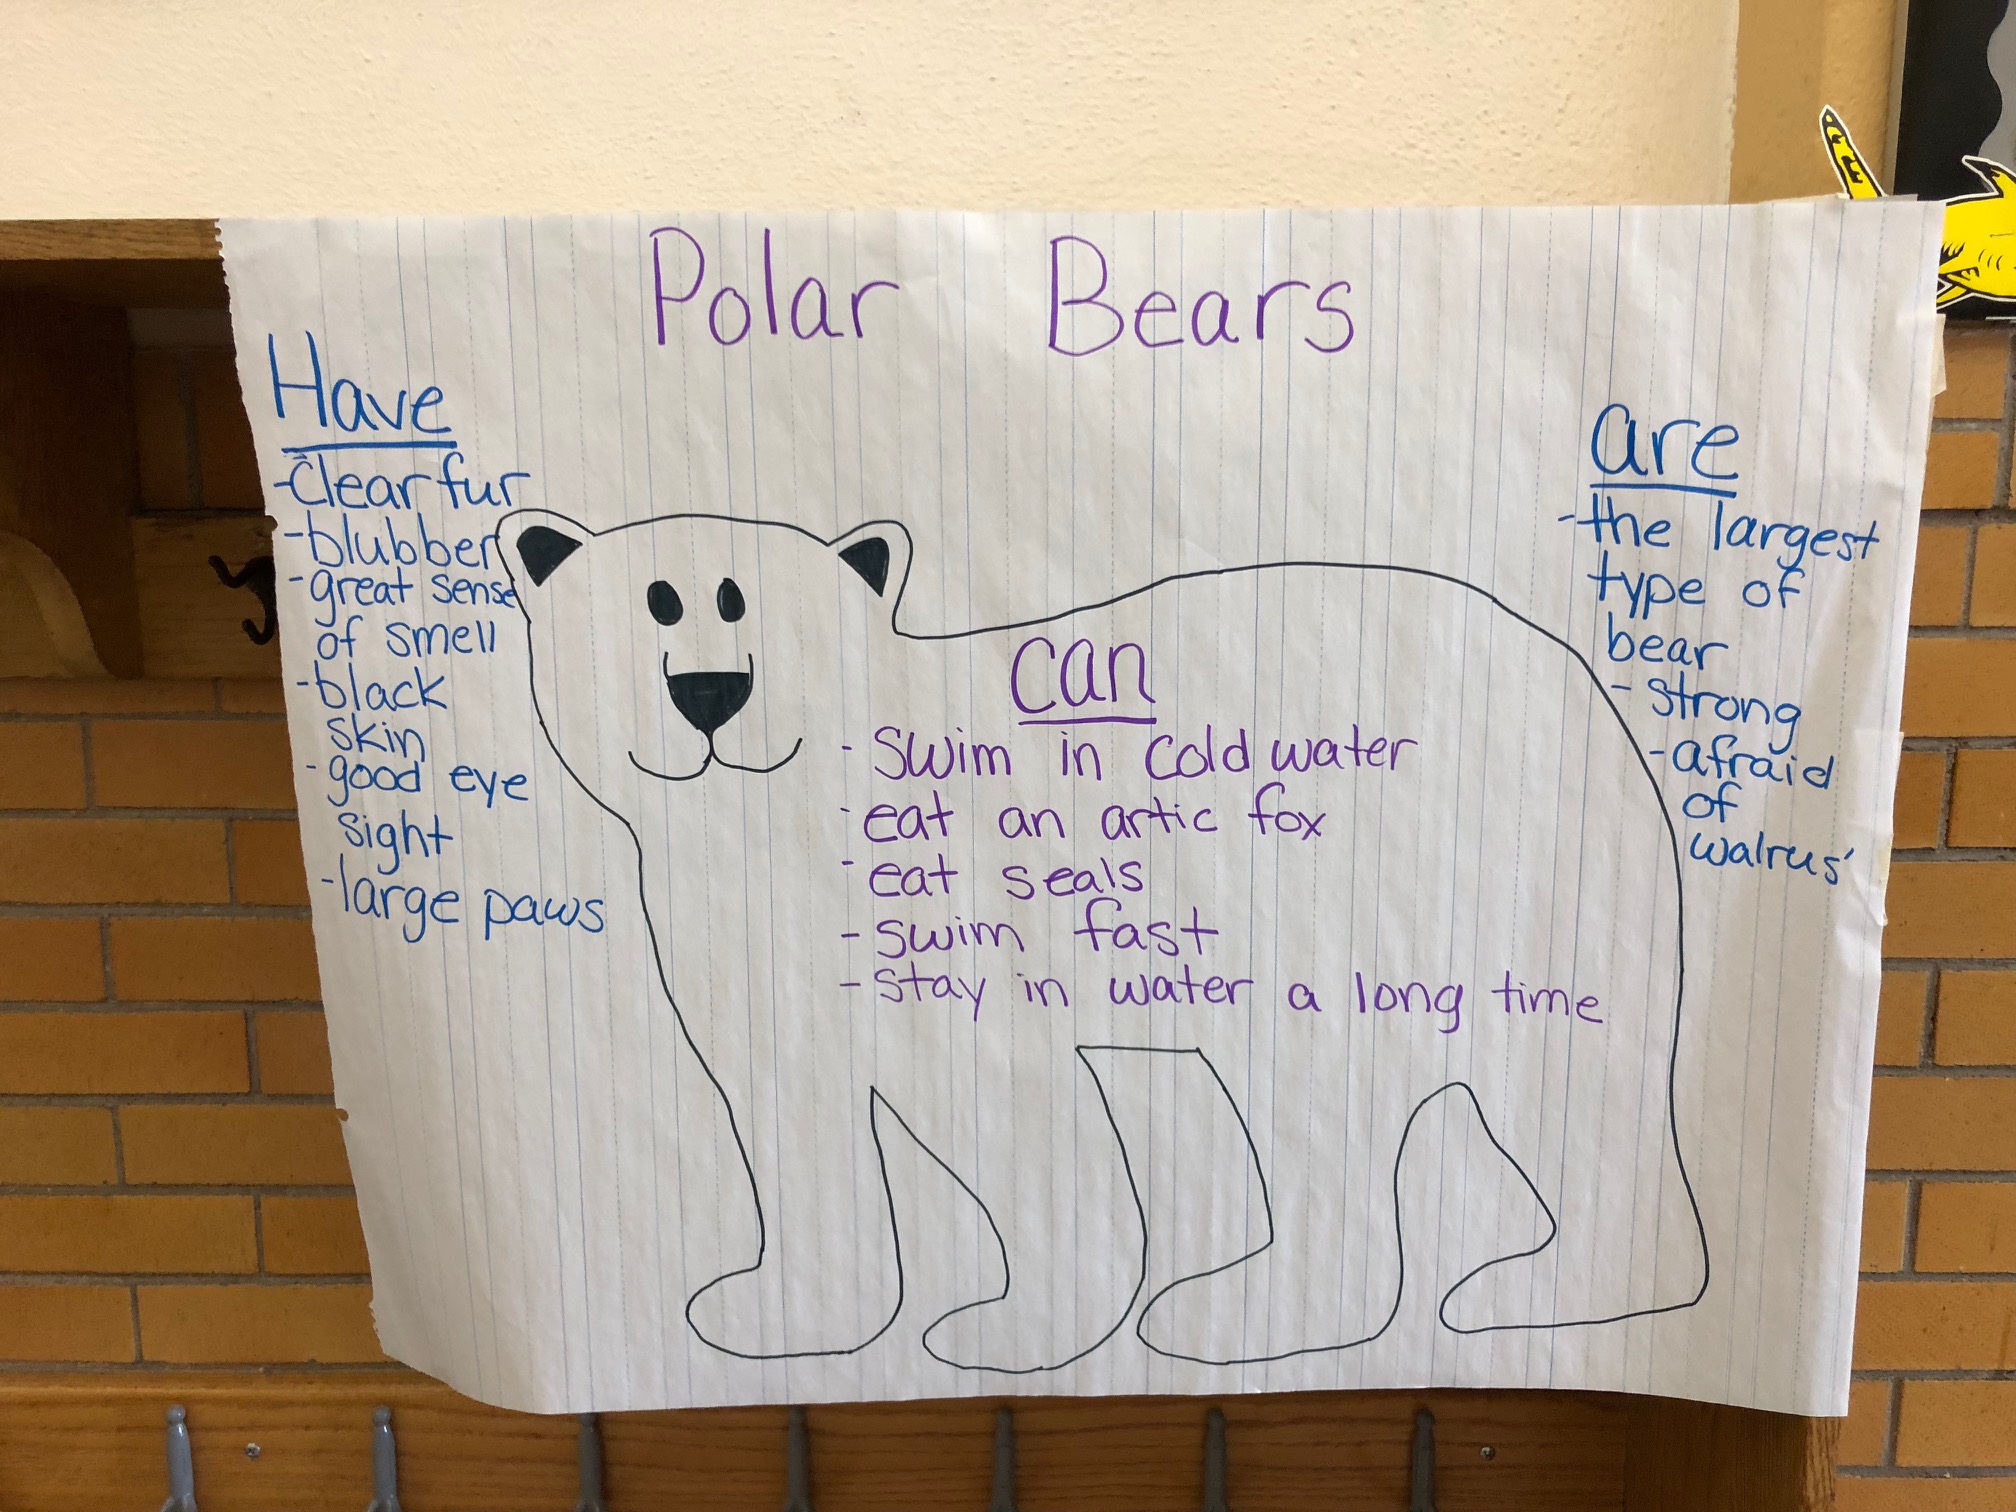 Polar Bears
Have
-Clear fur
-blubber
-great sense
of smell
-black
skin
-good eye
sight
-large paws
can
- swim in cold water
-eat an artic fox
-eat seals
-swim fast
-stay in water a long time
are
-the largest
type of
bear
-strong
-afraid
of
walrus'